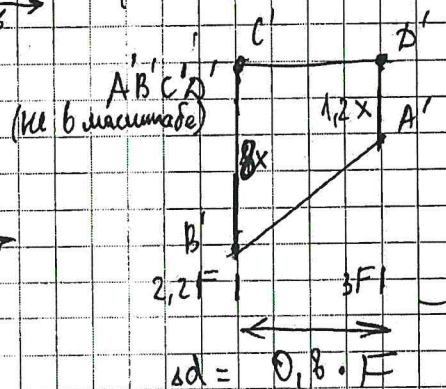 C' D'
A'B'C'D'
(не в масштабе)
1,2x A'
8x
B'
2,2F 3F
Δd = 0,8 · F